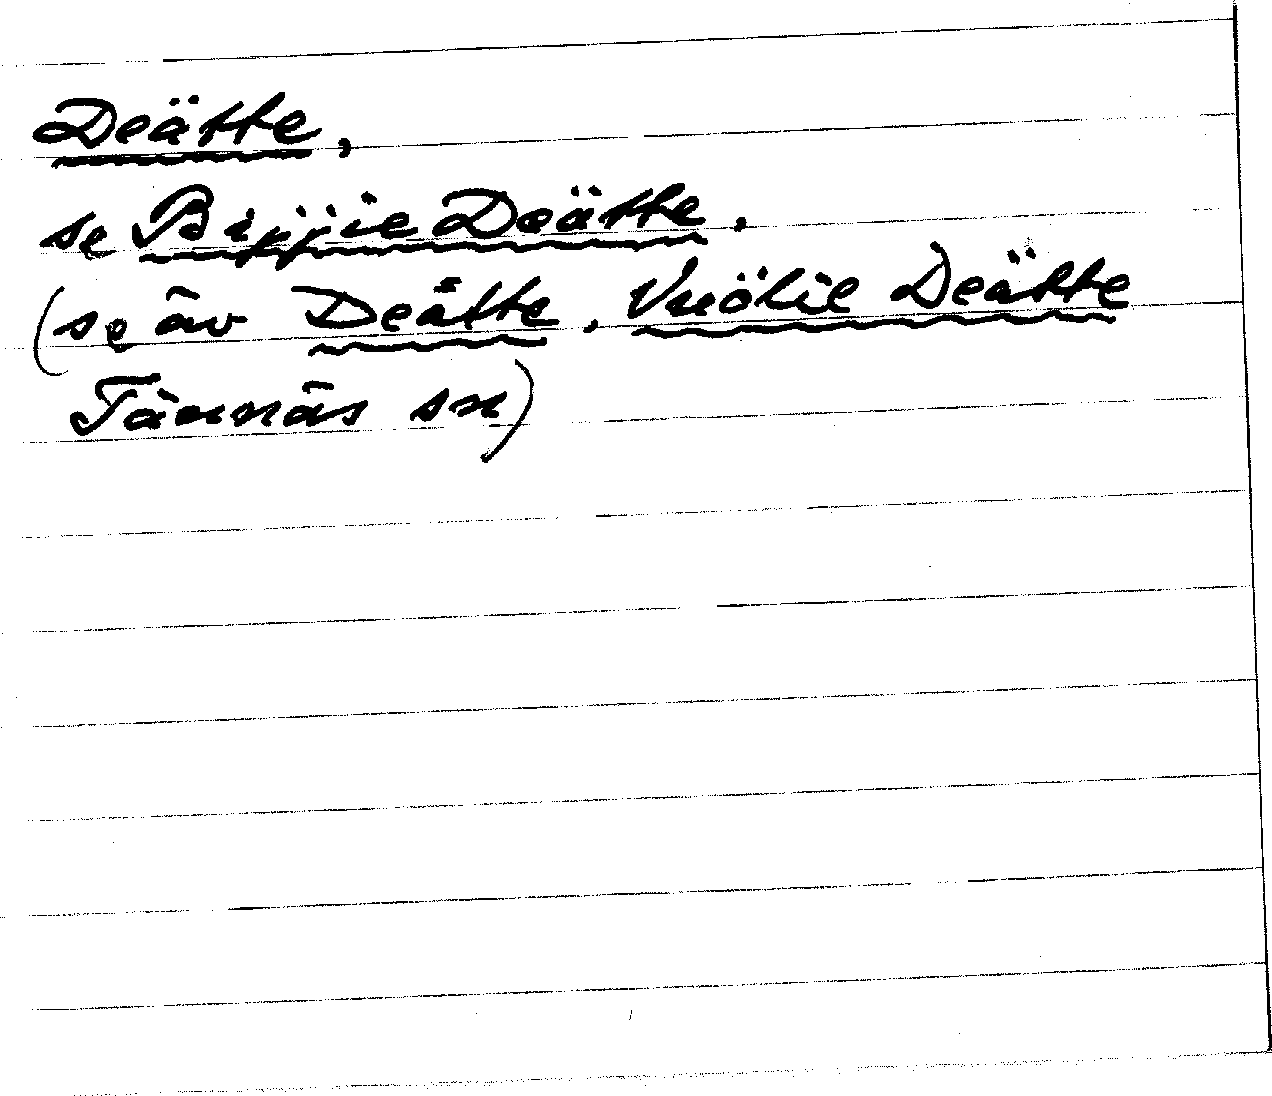 Deätte,
se Bijjie Deätte,
(se äv Deätte, Vuölie Deätte
Tännäs sn)